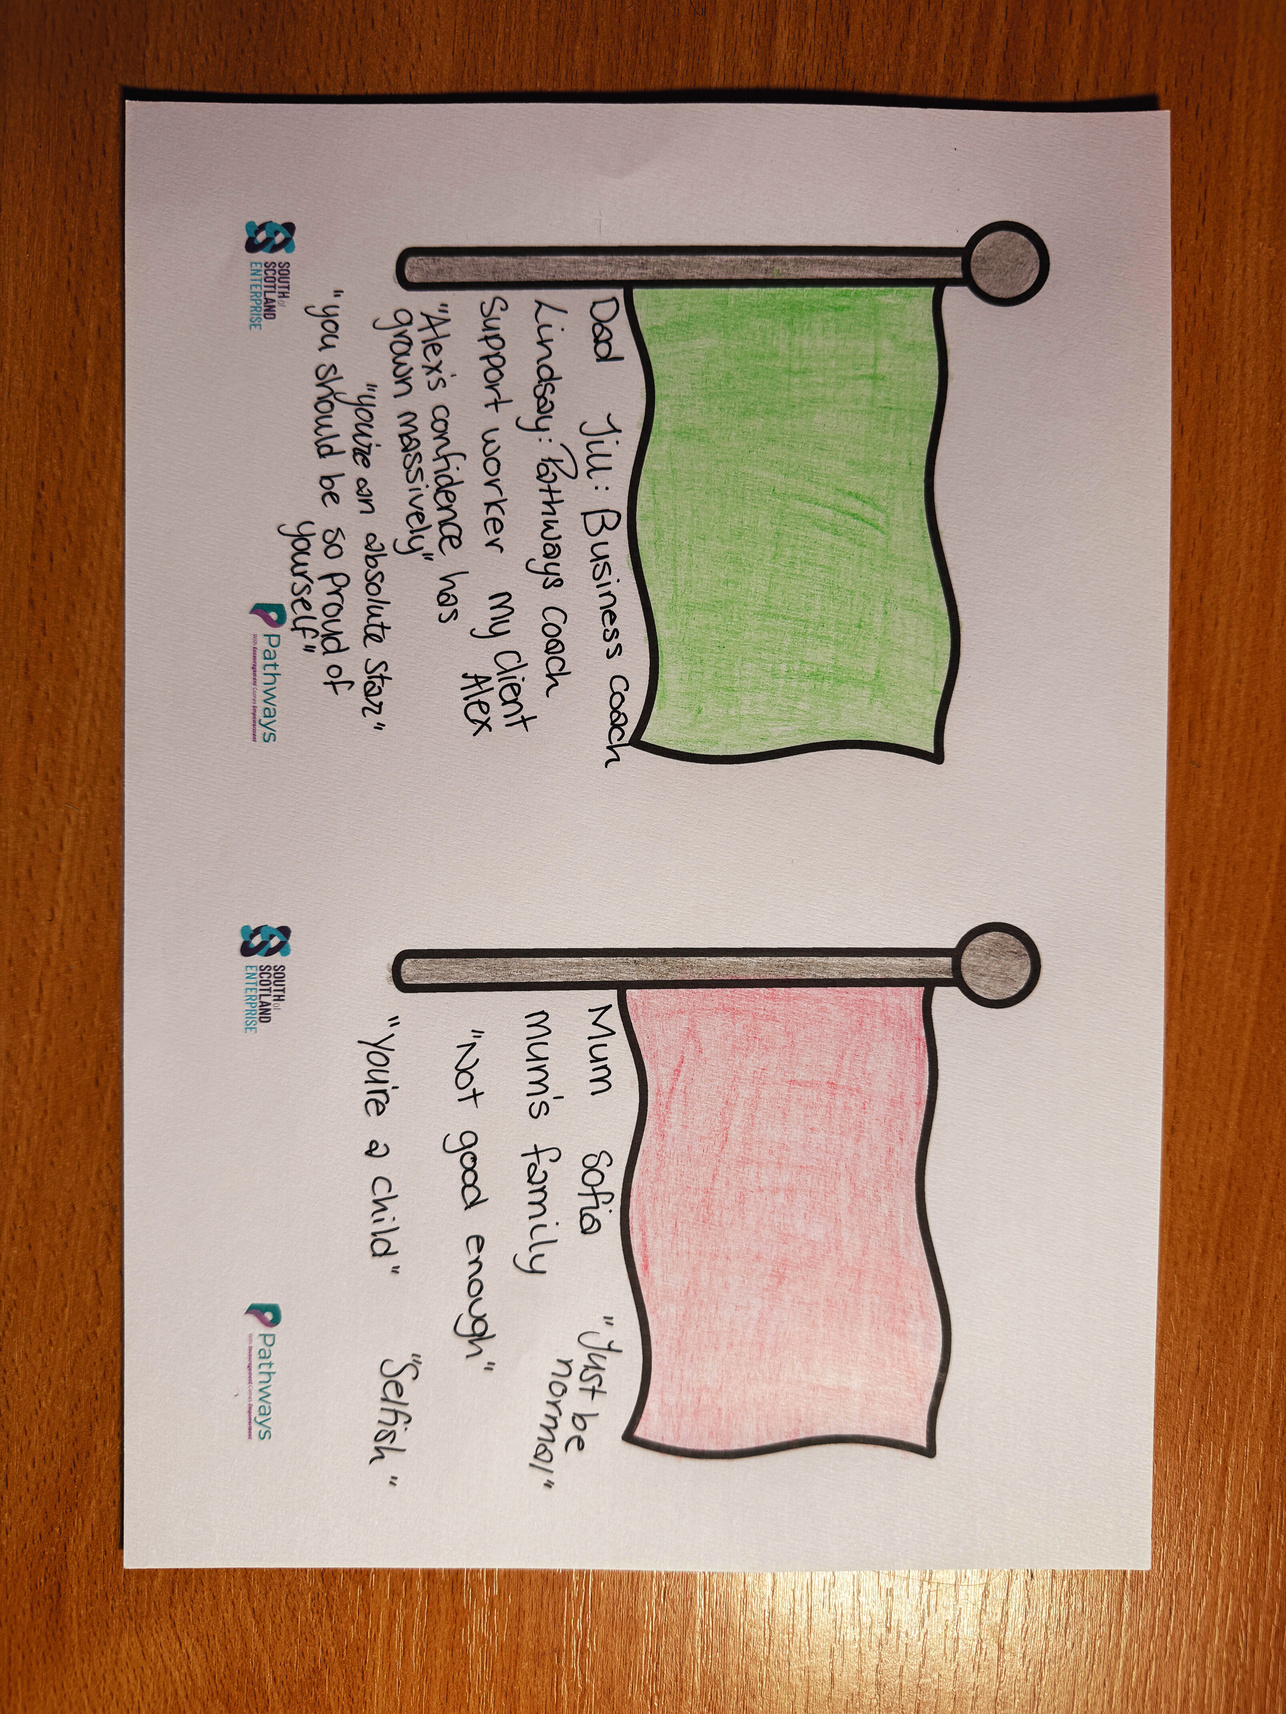 Dad Jill: Business coach
Lindsay: Pathways coach
Support worker my client
Alex
"Alex's confidence has
grown massively"
"you're an absolute star"
"you should be so proud of
yourself"
SOUTH of
SCOTLAND
ENTERPRISE
Pathways
Mum Sofia "Just be
normal"
mum's family
"Not good enough"
"You're a child" "Selfish"
SOUTH of
SCOTLAND
ENTERPRISE
Pathways